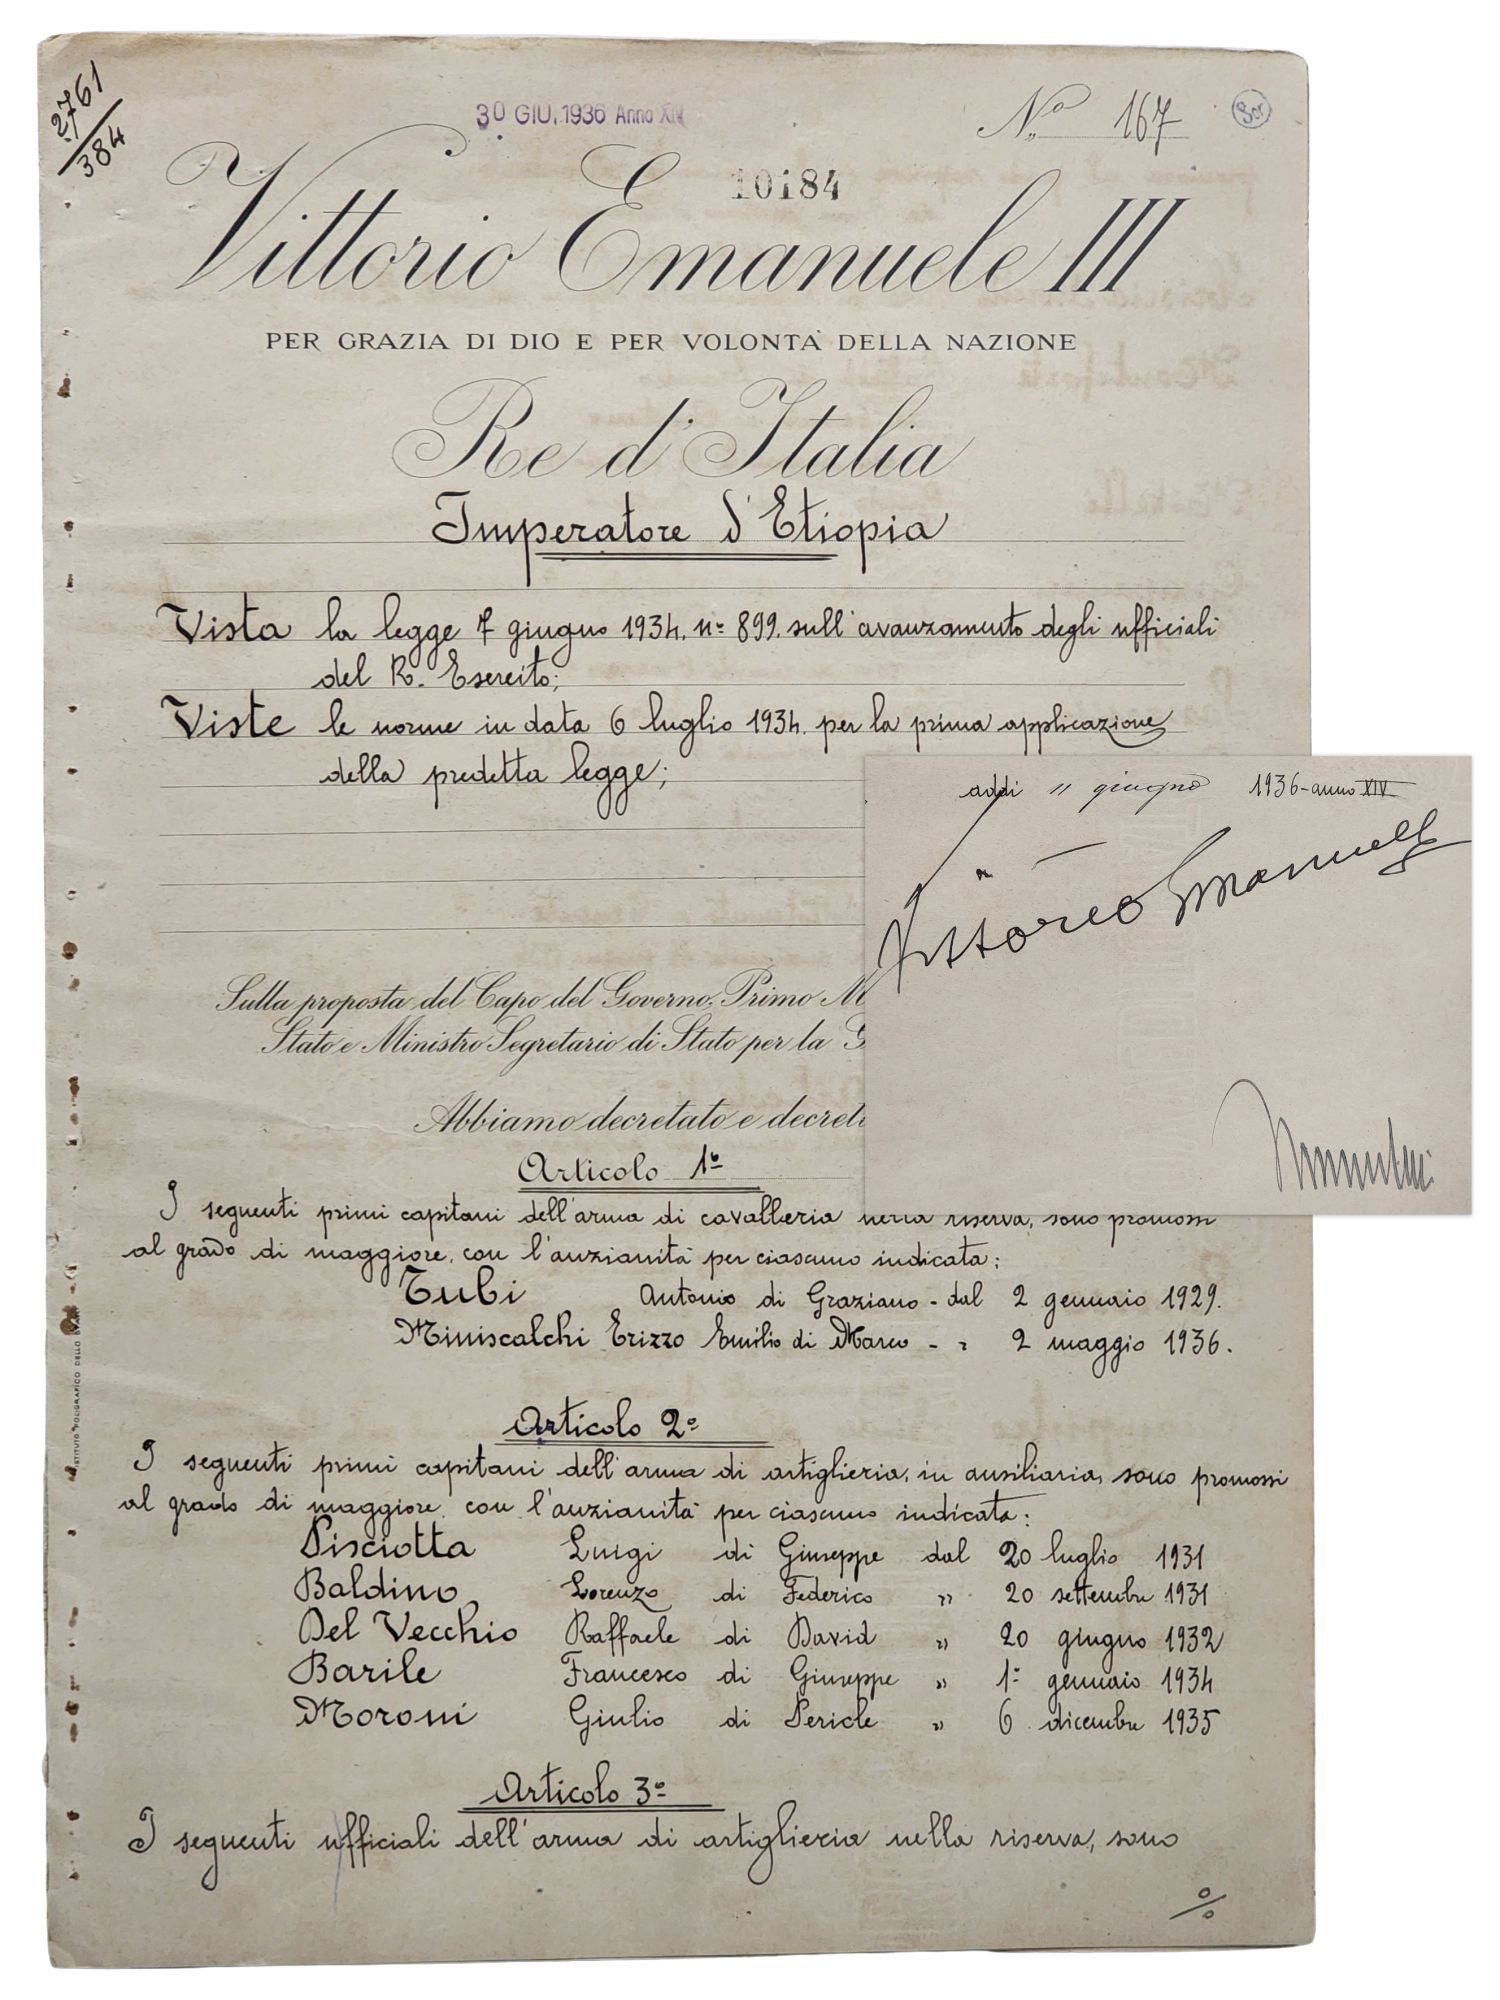 2761/384
30 GIU. 1936 Anno XIV
N.º 167
10184
Vittorio Emanuele III
PER GRAZIA DI DIO E PER VOLONTÀ DELLA NAZIONE
Re d'Italia
Imperatore d'Etiopia
Vista la legge 7 giugno 1934, nº 899, sull'avanzamento degli ufficiali
del R. Esercito;
Viste le norme in data 6 luglio 1934 per la prima applicazione
della predetta legge;
Sulla proposta del Capo del Governo, Primo M
Stato e Ministro Segretario di Stato per la G
Abbiamo decretato e decret
Articolo 1º
I seguenti primi capitani dell'arma di cavalleria nella riserva, sono promossi
al grado di maggiore, con l'anzianità per ciascuno indicata:
Tubi Antonio di Graziano - dal 2 gennaio 1929.
Miniscalchi Erizzo Emilio di Marco - " 2 maggio 1936.
Articolo 2º
I seguenti primi capitani dell'arma di artiglieria, in ausiliaria, sono promossi
al grado di maggiore con l'anzianità per ciascuno indicata:
Pisciotta Luigi di Giuseppe dal 20 luglio 1931
Baldino Lorenzo di Federico " 20 settembre 1931
Del Vecchio Raffaele di David " 20 giugno 1932
Barile Francesco di Giuseppe " 1º gennaio 1934
Moroni Giulio di Pericle " 6 dicembre 1935
Articolo 3º
I seguenti ufficiali dell'arma di artiglieria nella riserva, sono
%
addì 11 giugno 1936-anno XIV
Vittorio Emanuele
Mussolini